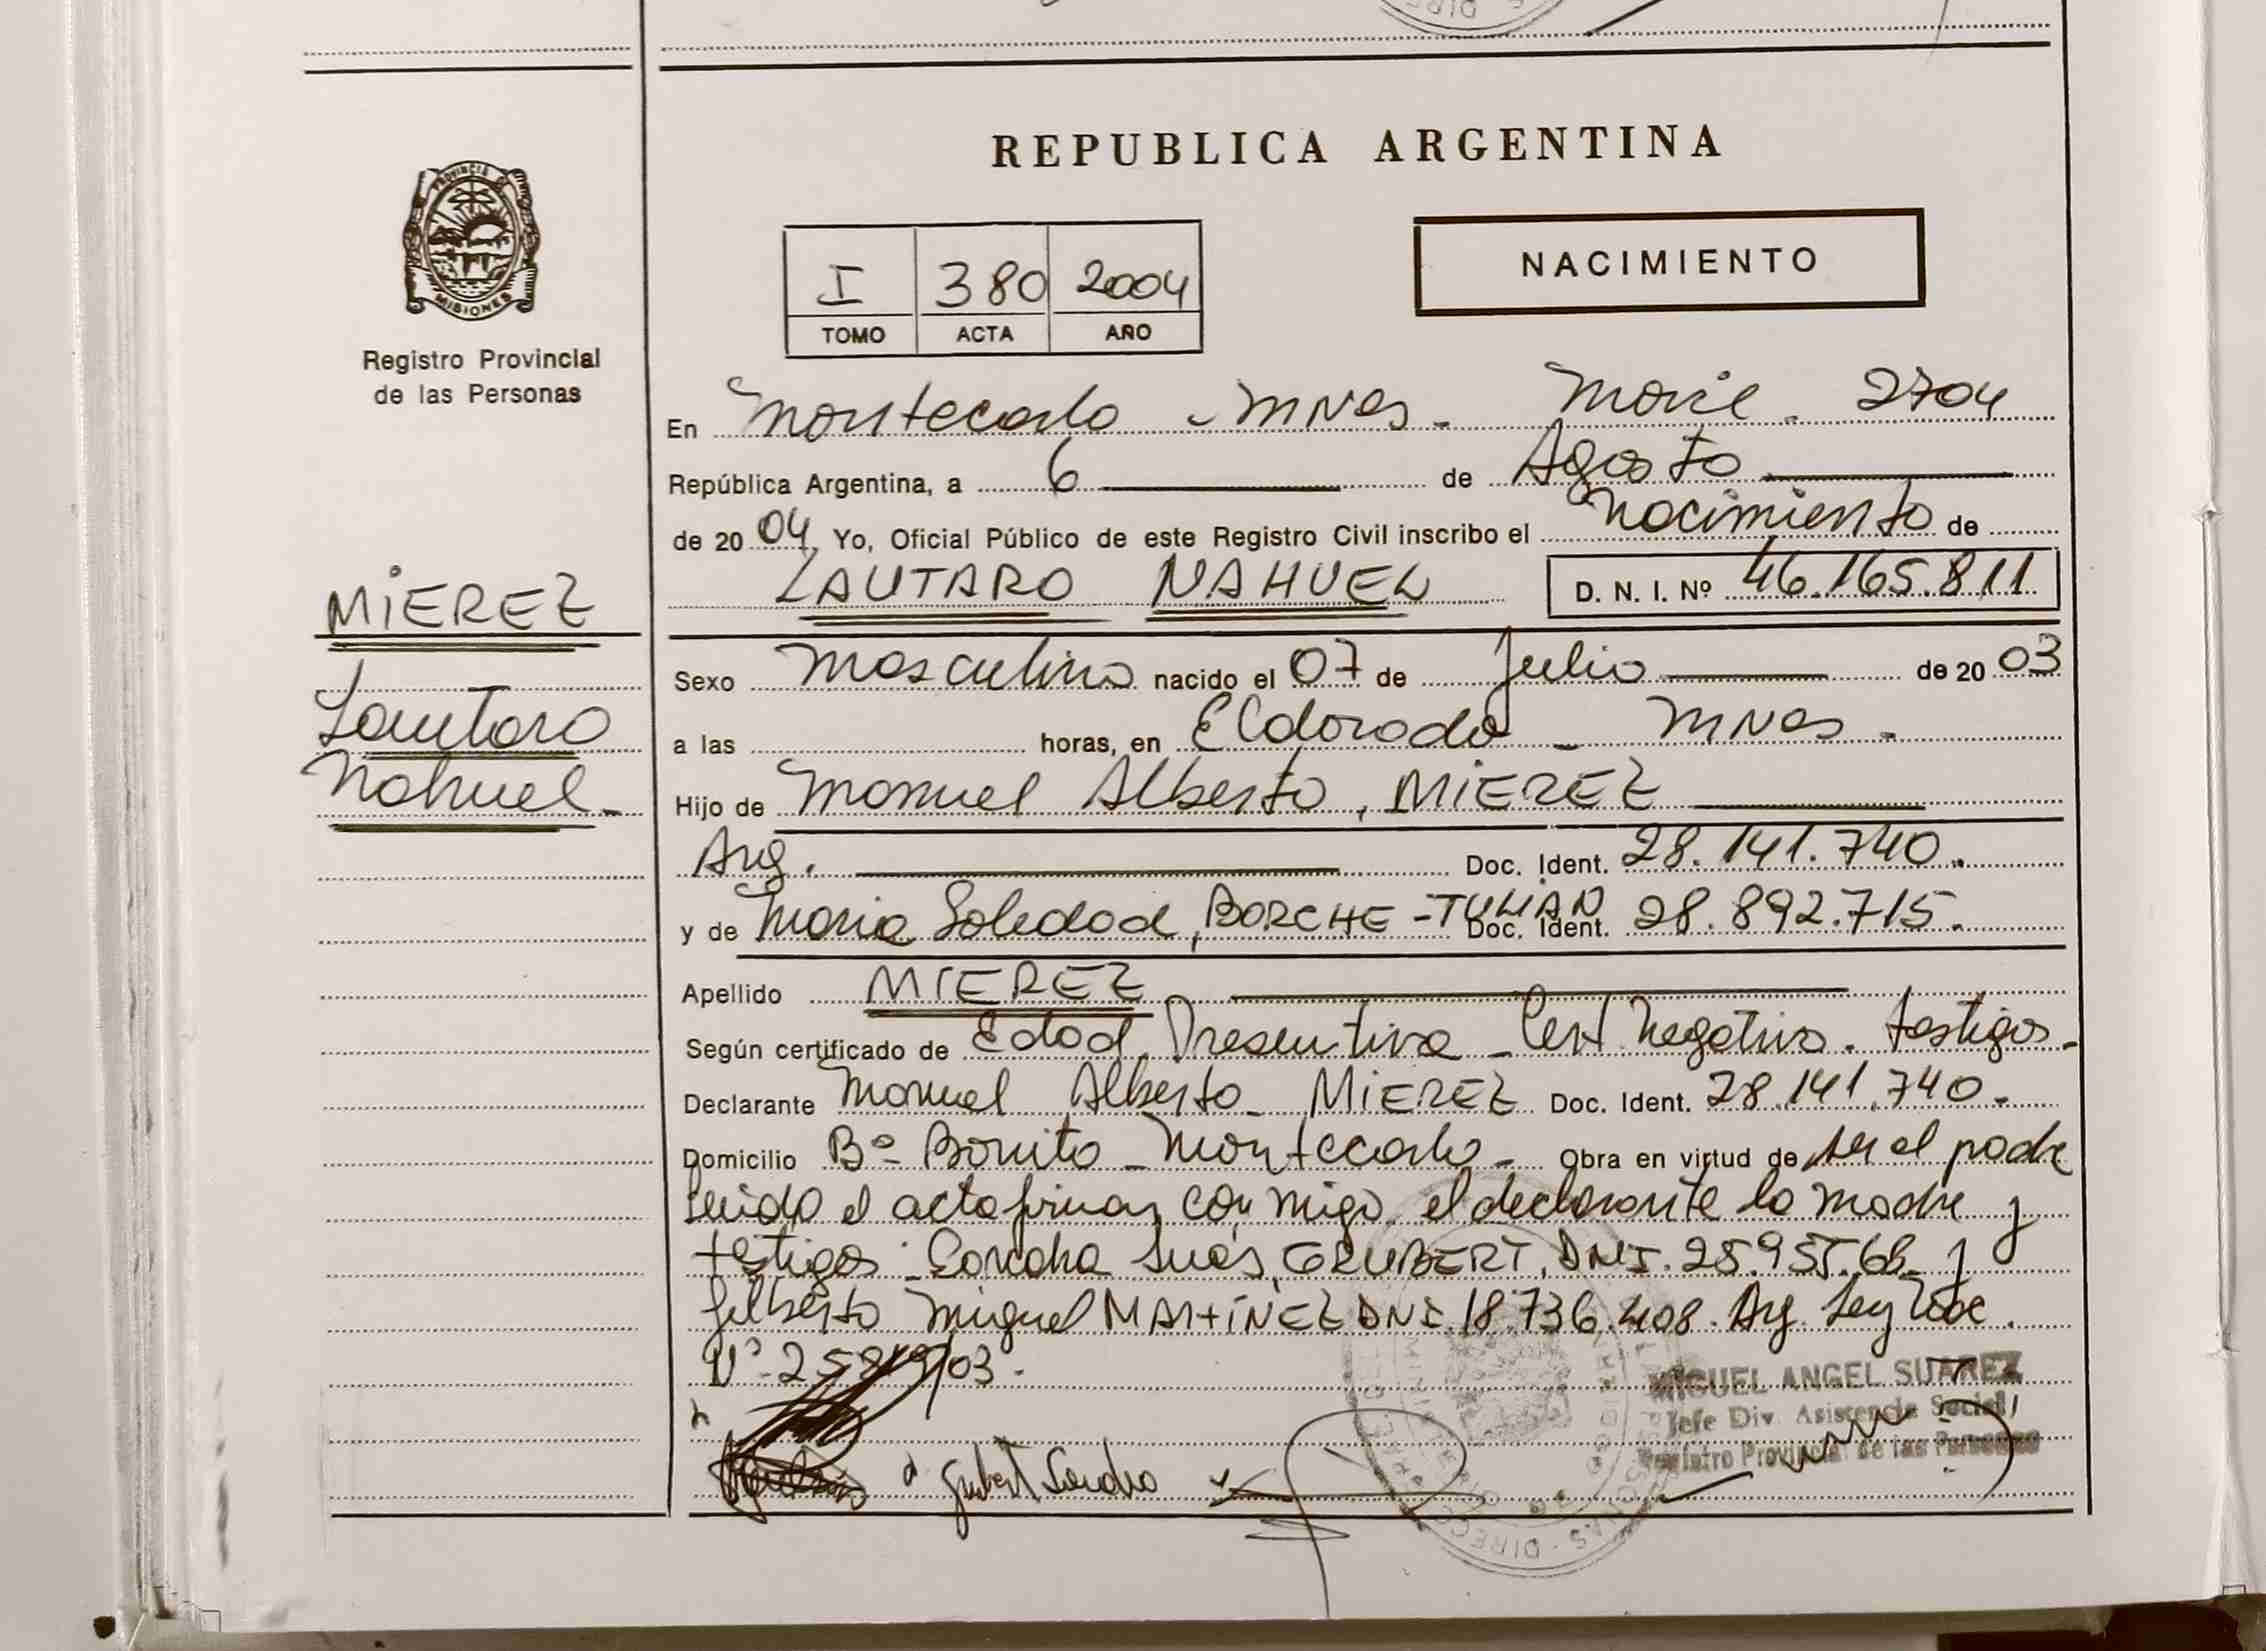 REPUBLICA ARGENTINA
PROVINCIA DE
MISIONES
Registro Provincial
de las Personas
I 380 2004
TOMO ACTA AÑO
NACIMIENTO
En Montecarlo - Mnes. Movil. 2704
República Argentina, a 6 de Agosto
de 2004 Yo, Oficial Público de este Registro Civil inscribo el Nacimiento de
LAUTARO NAHUEL D. N. I. Nº 46.165.811
MIEREZ
Lautaro
Nahuel
Sexo Masculino nacido el 07 de Julio de 2003
a las horas, en Eldorado - Mnes.
Hijo de Manuel Alberto, MIEREZ
Arg. Doc. Ident. 28.141.740.
y de Maria Soledad, BORCHE - TULIAN Doc. Ident. 28.892.715.
Apellido MIEREZ
Según certificado de Edad Presuntiva - Cert Negativo. testigos -
Declarante Manuel Alberto - MIEREZ Doc. Ident. 28.141.740.
Domicilio Bº Bonito - Montecarlo - Obra en virtud de ser el padre
leido el acta firman con migo el declarante la madre y
testigos: Sandra Inés, GRUBERT, DNI. y
Gilberto Miguel MARTÍNEZ DNI. 18.736.408. Arg. Ley
Nº 25819/03.
Grubert Sandra
MIGUEL ANGEL SUAREZ
Jefe Div. Asistencia Social
Registro Provincial de las Personas